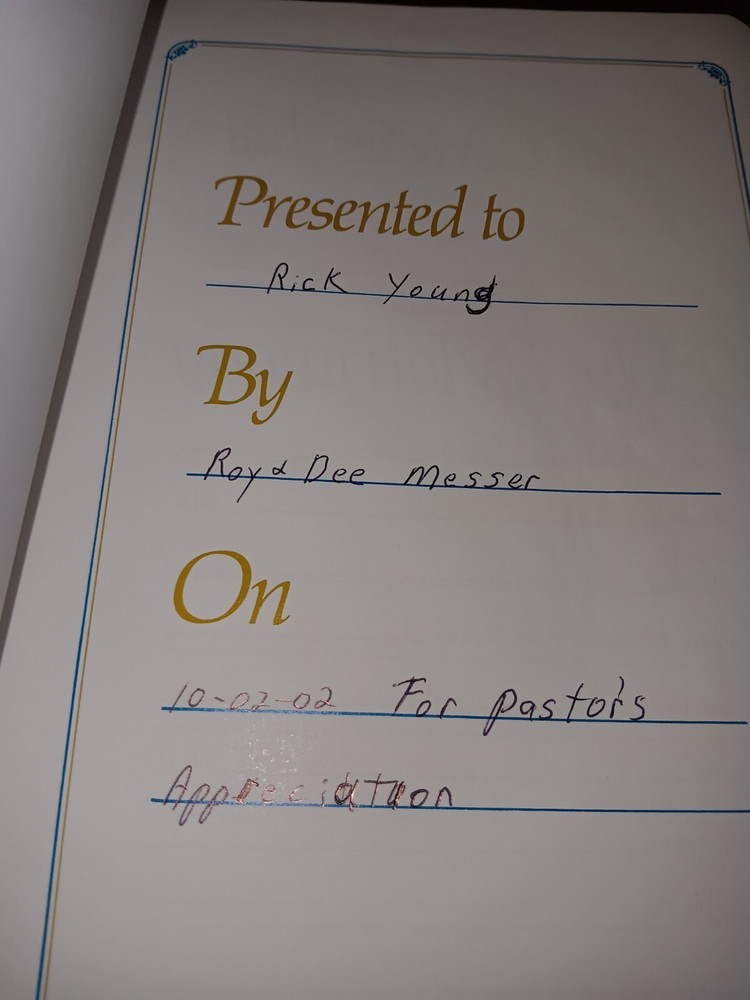 Presented to
Rick Young
By
Roy & Dee Messer
On
10-02-02 For Pastor's
Appreciation